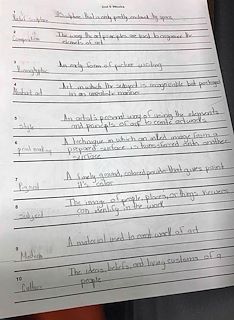 1
Relief Sculpture
Sculpture that is only partly enclosed by space
2
Composition
The way the art principles are used to organize the
elements of art
3
Hieroglyphic
An early form of picture writing
4
Abstract art
Art in which the subject is recognizable but portrayed
in an unrealistic manner
5
Style
An artist's personal way of using the elements
and principles of art to create artworks
6
print making
A technique in which an inked image from a
prepared surface is transferred onto another
surface
7
Pigment
A finely ground, colored powder that gives paint
it's color
8
Subject
The image of people, places, or things viewers
can identify in the work
9
Medium
A material used to create work of art
10
Culture
The ideas, beliefs, and living customs of a
people